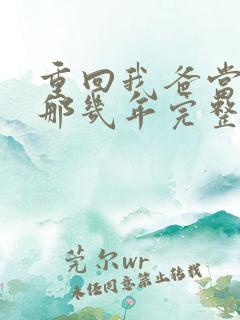 重回我爸当
那几年完整
莞尔wr
未经同意禁止转载